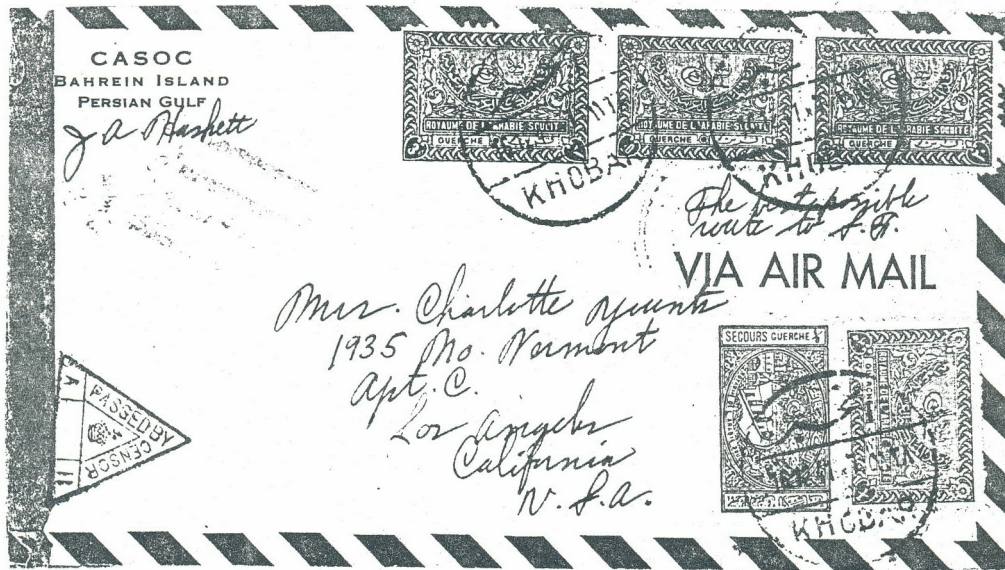 CASOC
BAHREIN ISLAND
PERSIAN GULF
J A Haskett
ROYAUME DE L'ARABIE SOUDITE
GUERCHE
ROYAUME DE L'ARABIE SOUDITE
GUERCHE
ROYAUME DE L'ARABIE SOUDITE
GUERCHE
KHOBAR
KHOBAR
The best possible
route to S.F.
VIA AIR MAIL
Mrs. Charlotte
1935 No. Vermont
Apt. C.
Los Angeles
California
U.S.A.
PASSED BY
CENSOR
SECOURS GUERCHE
KHOBAR